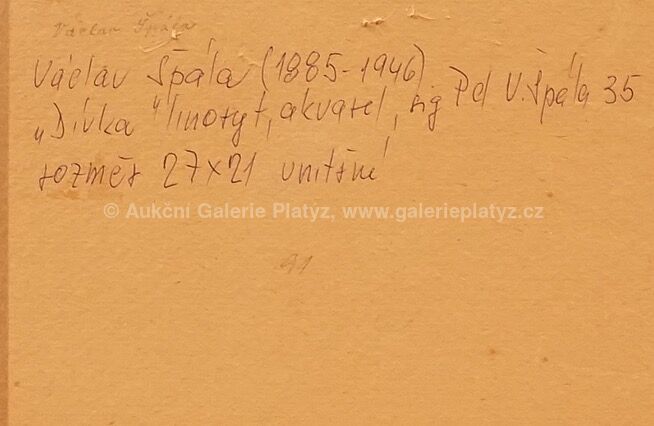 Václav Špála
Václav Špála (1885-1946)
„Dívka" linoryt, akvarel, sig Pd V. Špála 35
rozměr 27x21 vnitřní
© Aukční Galerie Platýz, www.galerieplatyz.cz